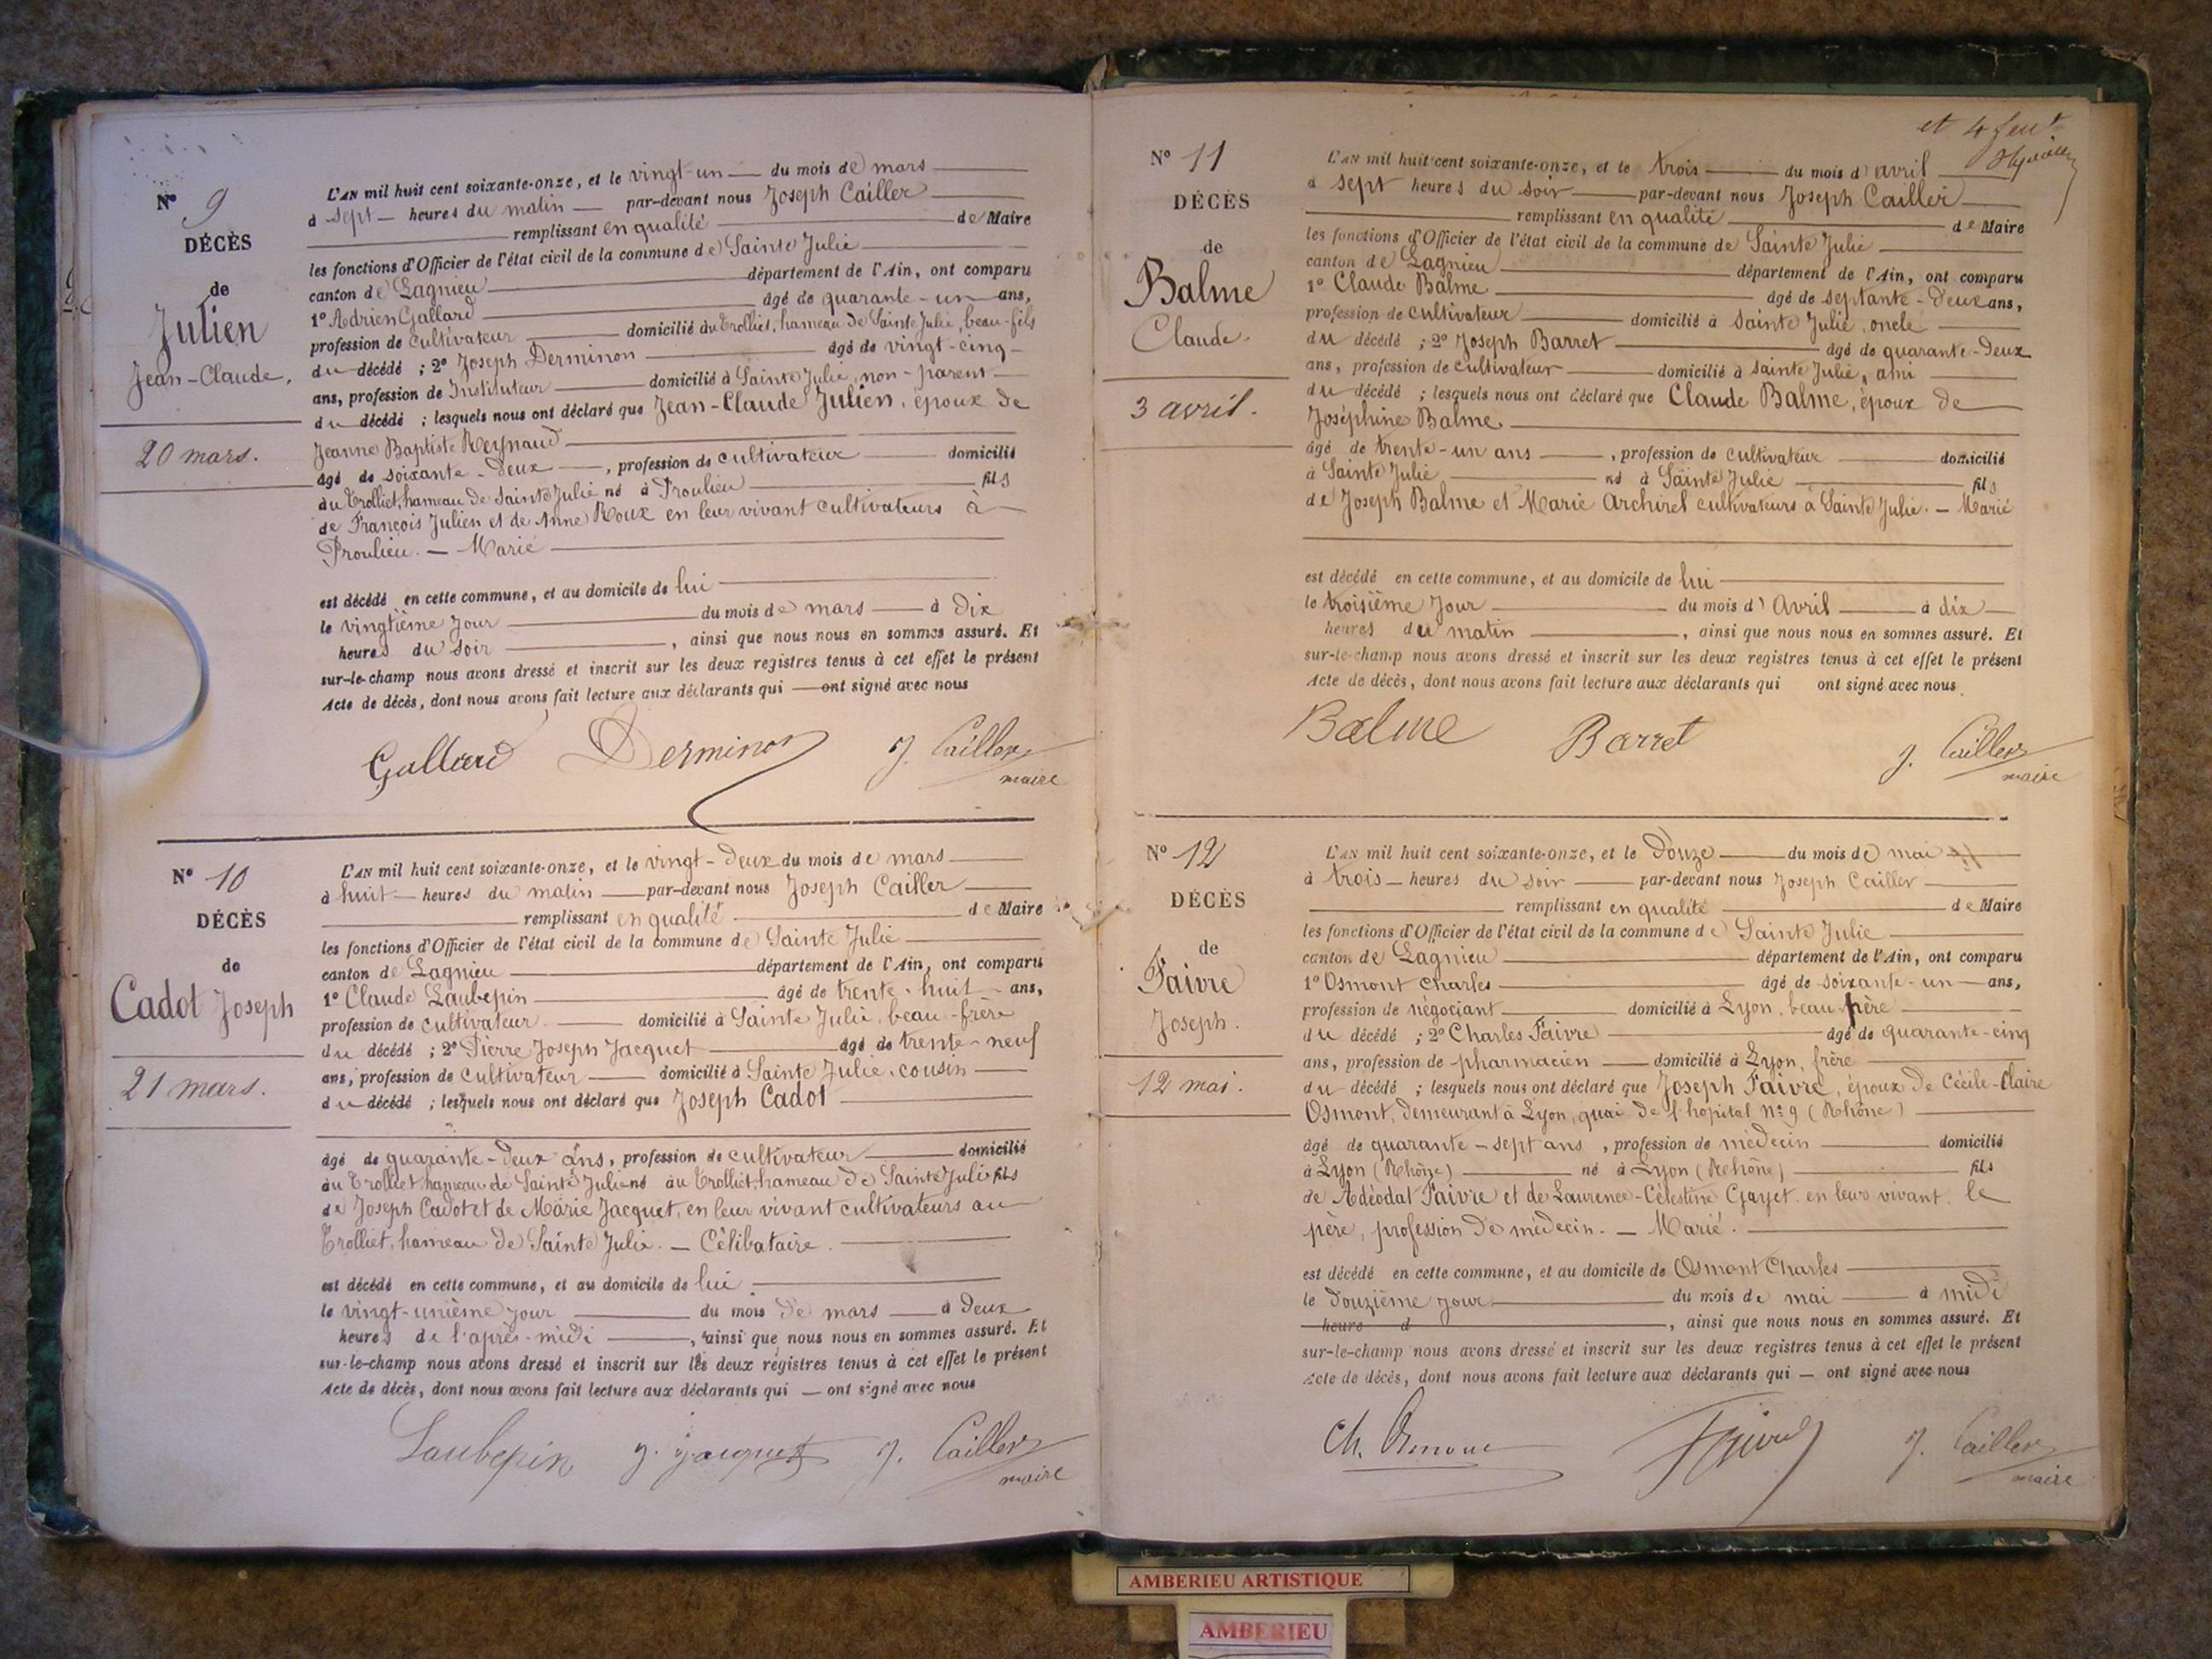 Nº 9
DÉCÈS
de
Julien
Jean-Claude,
20 mars.
L'AN mil huit cent soixante-onze, et le vingt-un du mois de mars
à sept heures du matin par-devant nous Joseph Cailler
remplissant en qualité de Maire
les fonctions d'Officier de l'état civil de la commune de Sainte Julie
canton de Lagnieu département de l'Ain, ont comparu
1º Adrien Gallard âgé de quarante-un ans,
profession de cultivateur domicilié au Trolliet, hameau de Sainte Julie, beau-fils
du décédé ; 2º Joseph Derminon âgé de vingt-cinq
ans, profession de Instituteur domicilié à Sainte Julie, non-parent
du décédé ; lesquels nous ont déclaré que Jean-Claude Julien, époux de
Jeanne Baptiste Reynaud
âgé de soixante-deux, profession de cultivateur domicilié
au Trolliet, hameau de Sainte Julie né à Proulieu fils
de François Julien et de Anne Roux en leur vivant cultivateurs à
Proulieu. — Marié
est décédé en cette commune, et au domicile de lui
le vingtième jour du mois de mars à dix
heures du soir, ainsi que nous nous en sommes assuré. Et
sur-le-champ nous avons dressé et inscrit sur les deux registres tenus à cet effet le présent
Acte de décès, dont nous avons fait lecture aux déclarants qui — ont signé avec nous
Gallard Derminon J. Cailler
maire
Nº 10
DÉCÈS
de
Cadot Joseph
21 mars.
L'AN mil huit cent soixante-onze, et le vingt-deux du mois de mars
à huit heures du matin par-devant nous Joseph Cailler
remplissant en qualité de Maire
les fonctions d'Officier de l'état civil de la commune de Sainte Julie
canton de Lagnieu département de l'Ain, ont comparu
1º Claude Laubepin âgé de trente-huit ans,
profession de cultivateur domicilié à Sainte Julie, beau-frère
du décédé ; 2º Pierre Joseph Jacquet âgé de trente-neuf
ans, profession de cultivateur domicilié à Sainte Julie, cousin
du décédé ; lesquels nous ont déclaré que Joseph Cadot
âgé de quarante-deux ans, profession de cultivateur domicilié
au Trolliet hameau de Sainte Julie né au Trolliet, hameau de Sainte Julie fils
de Joseph Cadot et de Marie Jacquet, en leur vivant cultivateurs au
Trolliet, hameau de Sainte Julie. — Célibataire.
est décédé en cette commune, et au domicile de lui
le vingt-unième jour du mois de mars à deux
heures de l'après-midi, ainsi que nous nous en sommes assuré. Et
sur-le-champ nous avons dressé et inscrit sur les deux registres tenus à cet effet le présent
Acte de décès, dont nous avons fait lecture aux déclarants qui — ont signé avec nous
Laubepin J. Jacquet J. Cailler
maire
et 4 feu.t
Nº 11
DÉCÈS
de
Balme
Claude.
3 avril.
L'AN mil huit cent soixante-onze, et le trois du mois d'avril
à sept heures du soir par-devant nous Joseph Cailler
remplissant en qualité de Maire
les fonctions d'Officier de l'état civil de la commune de Sainte Julie
canton de Lagnieu département de l'Ain, ont comparu
1º Claude Balme âgé de septante-deux ans,
profession de cultivateur domicilié à Sainte Julie, oncle
du décédé ; 2º Joseph Barret âgé de quarante-deux
ans, profession de cultivateur domicilié à Sainte Julie, ami
du décédé ; lesquels nous ont déclaré que Claude Balme, époux de
Joséphine Balme
âgé de trente-un ans, profession de cultivateur domicilié
à Sainte Julie né à Sainte Julie fils
de Joseph Balme et Marie Archirel cultivateurs à Sainte Julie. — Marié
est décédé en cette commune, et au domicile de lui
le troisième jour du mois d'Avril à dix
heures du matin, ainsi que nous nous en sommes assuré. Et
sur-le-champ nous avons dressé et inscrit sur les deux registres tenus à cet effet le présent
Acte de décès, dont nous avons fait lecture aux déclarants qui ont signé avec nous.
Balme Barret J. Cailler
maire
Nº 12
DÉCÈS
de
Faivre
Joseph.
12 mai.
L'AN mil huit cent soixante-onze, et le Douze du mois de mai
à trois heures du soir par-devant nous Joseph Cailler
remplissant en qualité de Maire
les fonctions d'Officier de l'état civil de la commune de Sainte Julie
canton de Lagnieu département de l'Ain, ont comparu
1º Osmont Charles âgé de soixante-un ans,
profession de négociant domicilié à Lyon, beau père
du décédé ; 2º Charles Faivre âgé de quarante-cinq
ans, profession de pharmacien domicilié à Lyon, frère
du décédé ; lesquels nous ont déclaré que Joseph Faivre, époux de Cécile-Claire
Osmont, demeurant à Lyon, quai de l'hopital nº 9 (Rhône)
âgé de quarante-sept ans, profession de médecin domicilié
à Lyon (Rhône) né à Lyon (Rhône) fils
de Adéodat Faivre et de Laurence-Célestine Gayet en leur vivant, le
père, profession de médecin. — Marié.
est décédé en cette commune, et au domicile de Osmont Charles
le Douzième jour du mois de mai à midi
heure d, ainsi que nous nous en sommes assuré. Et
sur-le-champ nous avons dressé et inscrit sur les deux registres tenus à cet effet le présent
Acte de décès, dont nous avons fait lecture aux déclarants qui — ont signé avec nous
Ch. Osmont Faivre J. Cailler
maire
AMBERIEU ARTISTIQUE
AMBERIEU